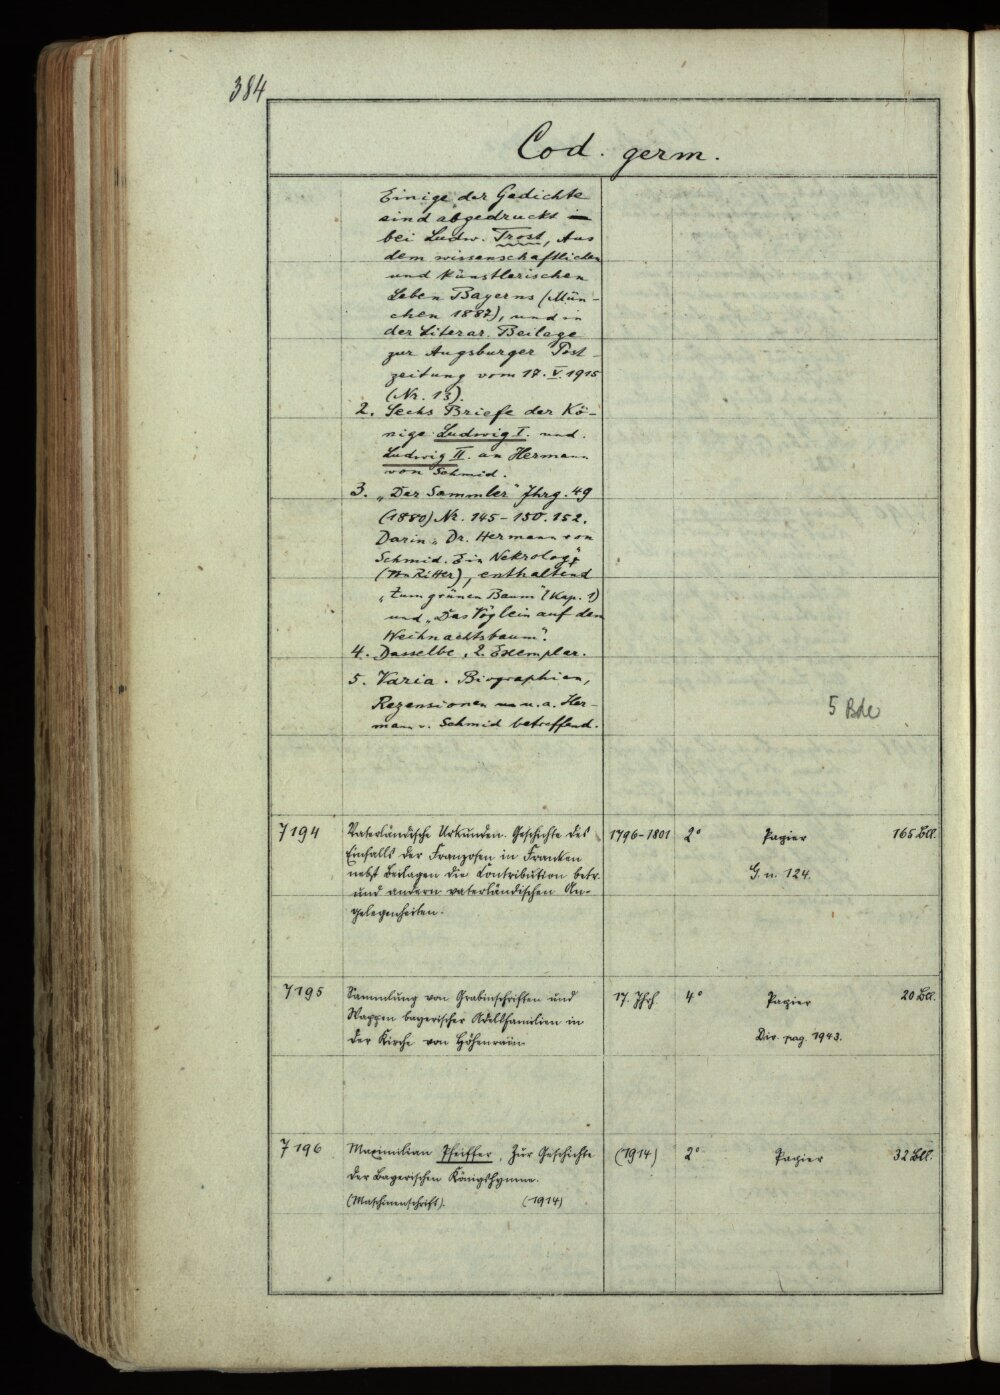 384
Cod. germ.
Einige der Gedichte
sind abgedruckt
bei Ludw. Trost, Aus
dem wissenschaftlichen
und künstlerischen
Leben Bayerns (Mün-
chen 1887), und in
der Literar. Beilage
zur Augsburger Post-
zeitung vom 17. V. 1915
(Nr. 13).
2. Sechs Briefe der Kö-
nige Ludwig I. und
Ludwig II. an Hermann
von Schmid.
3. „Der Sammler" Jhrg. 49
(1880) Nr. 145-150. 152.
Darin: Dr. Hermann von
Schmid. Ein Nekrolog"
Ritter), enthaltend
„Zum grünen Baum" (Kap. 1)
und „Das Vöglein auf dem
Weihnachtsbaum".
4. Dasselbe, 2. Exemplar.
5. Varia. Biographien,
Rezensionen u. a. Her-
mann v. Schmid betreffend.
5 Bde
7194 Vaterländische Urkunden. Geschichte des 1796-1801 2° Papier 165 Bll.
Einfalls der Franzosen in Franken
nebst Beilagen die Contribution betr. G. n. 124.
und andern vaterländischen An-
gelegenheiten.
7195 Sammlung von Grabinschriften und 17. Jhrh 4° Papier 20 Bll.
Wappen bayerischer Adelsfamilien in
der Kirche von Höhenrain Div. pag. 1943.
7196 Maximilian Pfeiffer, Zur Geschichte (1914) 2° Papier 32 Bll.
der Bayerischen Königshymne.
(Maschinenschrift). (1914)